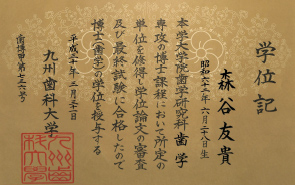 学位記
森谷友貴
昭和六十年六月二十八日生
本学大学院歯学研究科歯学
専攻の博士課程において所定の
単位を修得し学位論文の審査
及び最終試験に合格したので
博士(歯学)の学位を授与する
平成二十年三月二十一日
九州歯科大学
歯博甲第七五六号